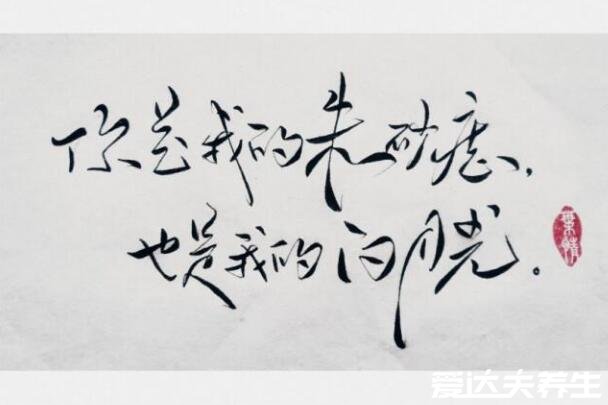 你是我的朱砂痣，
也是我的白月光。
爱达夫养生